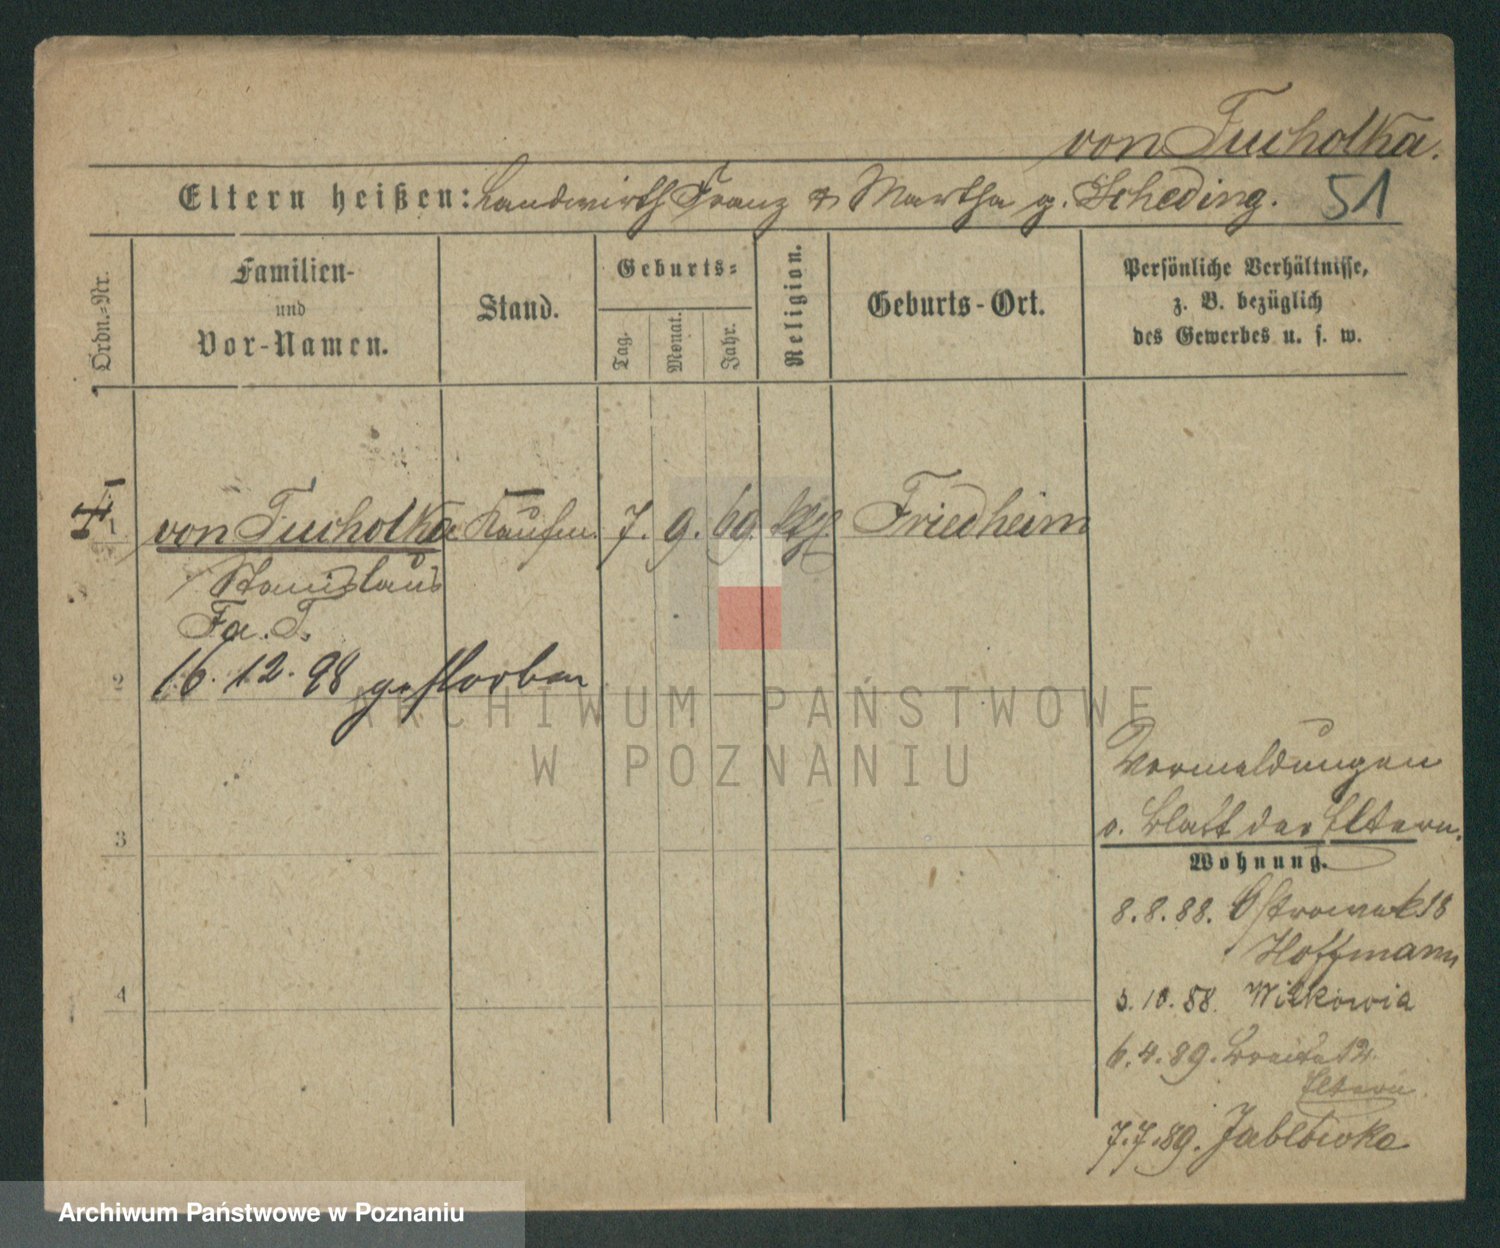 von Tucholka.
Eltern heißen: Landwirth Franz & Martha g. Scheding. 51
Ordn.-Nr.
Familien-
und
Vor-Namen.
Stand.
Geburts-
Tag.
Monat.
Jahr.
Religion.
Geburts-Ort.
Persönliche Verhältnisse,
z. B. bezüglich
des Gewerbes u. s. w.
1 von Tucholka Kaufm. 7. 9. 69. Friedheim
Stanislaus
Fa. T.
2 16.12.98 gestorben
ARCHIWUM PAŃSTWOWE
W POZNANIU
Vormeldungen
3 s. Blatt der Eltern.
Wohnung.
8.8.88. Ostrowek 18
Hoffmann
4 5.10.88. Wilkowia
6.4.89. Breite 12.
Eltern
7.7.89. Jablowko
Archiwum Państwowe w Poznaniu